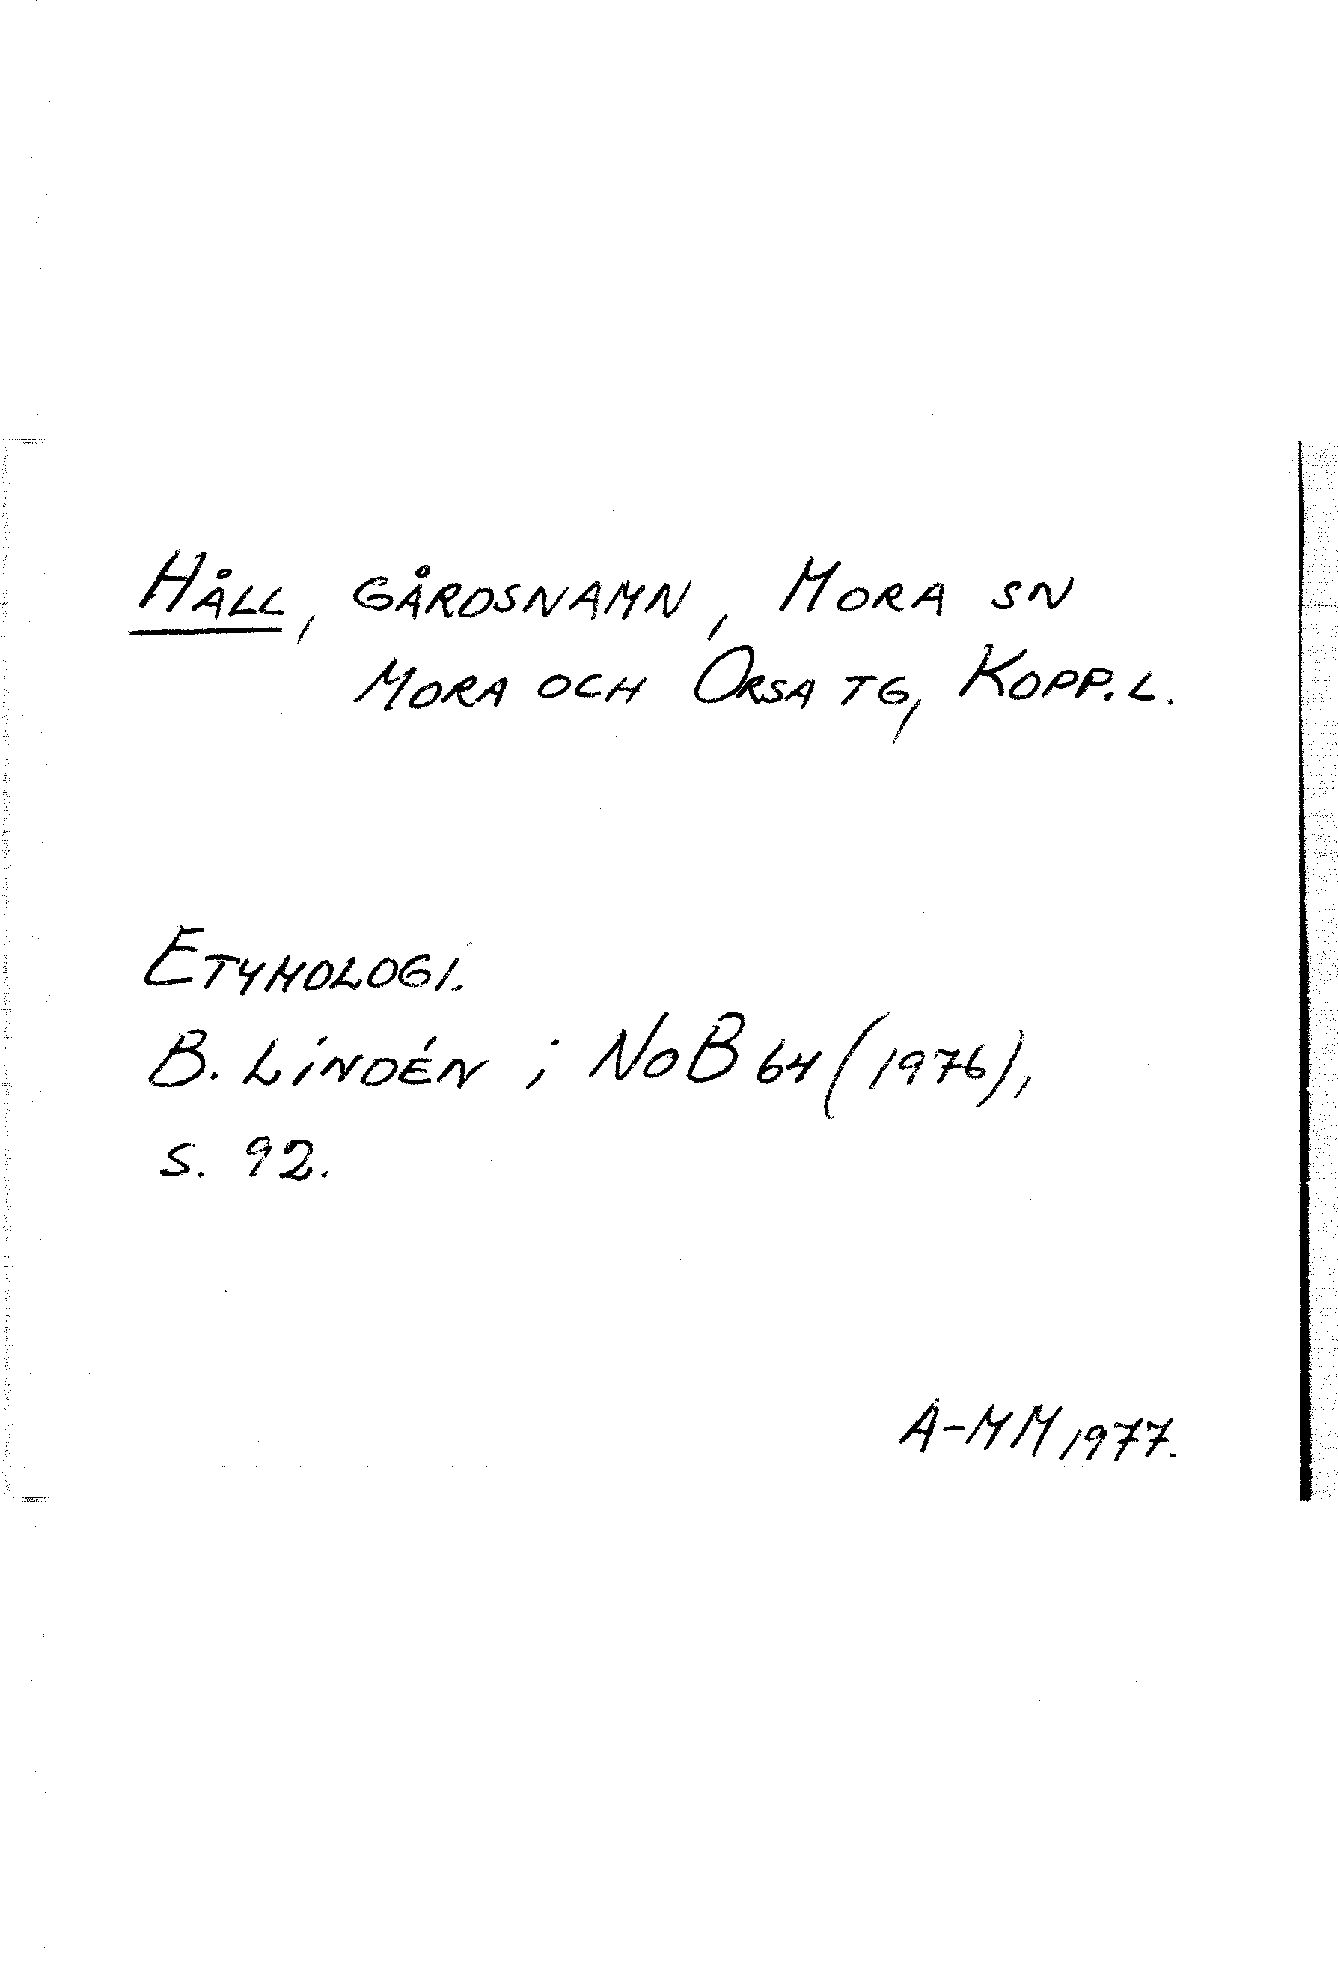 Håll, gårdsnamn, Mora sn
Mora och Orsa tg, Kopp.l.
Etymologi.
B. Lindén ; NoB 64 (1976),
s. 92.
A-MM 1977.